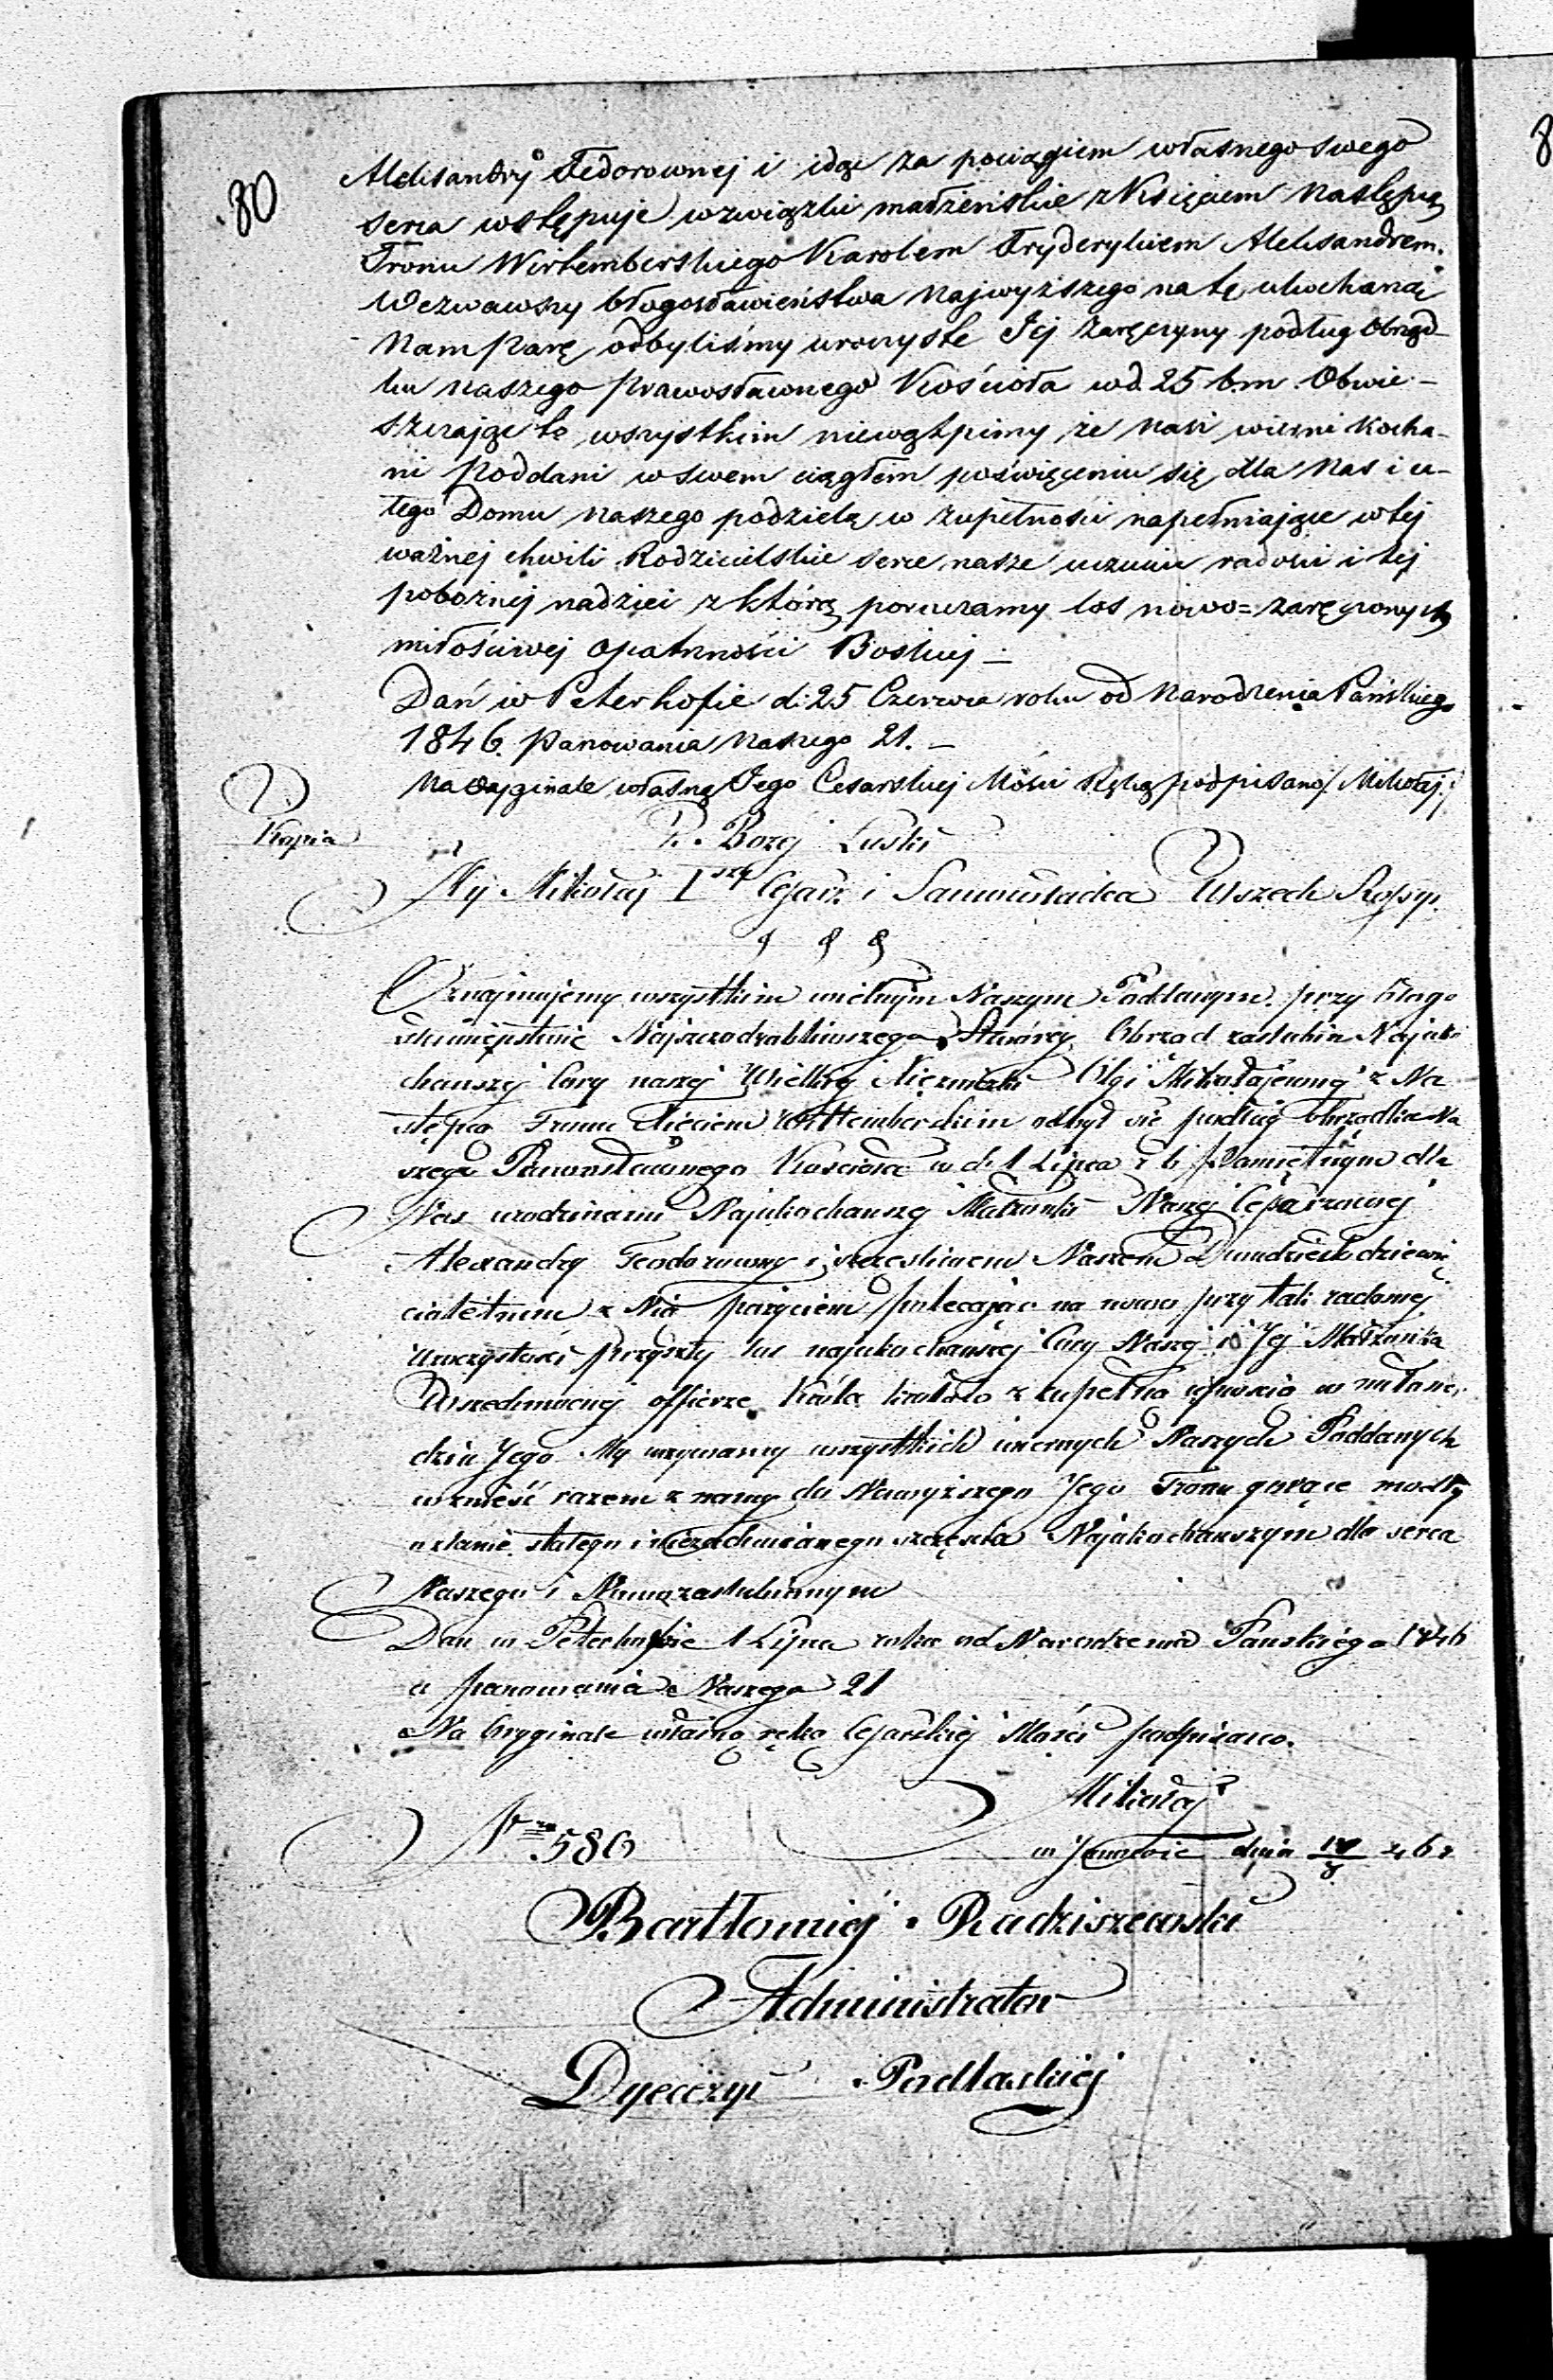 80
Aleksandry Fedorownej i idąc za pociągiem własnego swego
serca wstępuje w związki małżeńskie z Księciem Następcą
Tronu Wirtemberskiego Karolem Fryderykiem Aleksandrem.
Wezwawszy błogosławieństwa Najwyższego na tę ukochaną
Nam Parę, odbyliśmy uroczyste Jej zaręczyny podług Obrząd-
ku naszego prawosławnego Kościoła w d. 25 b.m. Obwie-
szczając to wszystkim niewątpimy, że nasi wierni kocha-
ni Poddani w swem ciągłem poświęceniu się dla Nas i ca-
łego Domu naszego podzielą w zupełności napełniające w tej
ważnej chwili Rodzicielskie serce nasze uczucia radości i tej
pobożnej nadziei z którą poruczamy los nowo=zaręczonych
miłościwej Opatrzności Boskiej –
Dań w Peterhofie d: 25 Czerwca roku od Narodzenia Pańskiego
1846. Panowania Naszego 21. –
Na Oryginale własną Jego Cesarskiej Mości Ręką podpisano / Mikołaj /
Kopia
Z. Bożej Łaski
My Mikołaj I szy Cesarz i Samowładca Wszech Rossyi.
Oznajmujemy wszystkim wiernym Naszym Poddanym. przy błogo
sławieństwie Najszczodrobliwszego Stwórcy, Obrząd zaślubin Najuko
chanszej Cory naszej Wielkiej Xiężniczki Olgi Mikołajewnej z Na
stępcą Tronu Xięciem Wirttemberskim odbył się podług Obrządku Na
szego Prawosławnego Kościoła w d. 1 Lipca r. b. Pamiętnym dla
Nas urodzinami Najukochanszej Małżonki Naszej Cesarzowej
Alexandry Teodorowny i szczesliwem Naszem Dwudziesto dziewię
cioletniem z Nią pożyciem polecając na nowo przy tak radosnej
Uroczystości przyszły los najukochańszej Cory Naszej i Jej Małżonka
Wszechmocnej opiece Króla królow z zupełną ufnością w miłosier
dziu Jego. My wzywamy wszystkich wiernych Naszych Poddanych
wznieść razem z nami do Najwyższego Jego Tronu gorące modły
o zlanie stałego i niezachwianego szczęścia Najukochanszym dla serca
Naszego i Nowozaslubionym
Dan w Peterhofie 1 Lipca roku od Narodzenia Pańskiego 1846
a panowania Naszego 21
Na Oryginale własną ręką Cesarskiej Mości podpisano.
Mikołaj
Nro 580
w Janowie dnia 46 r
Bartłomiej Radziszewski
Administrator
Dyecezyi Podlaskiej
8